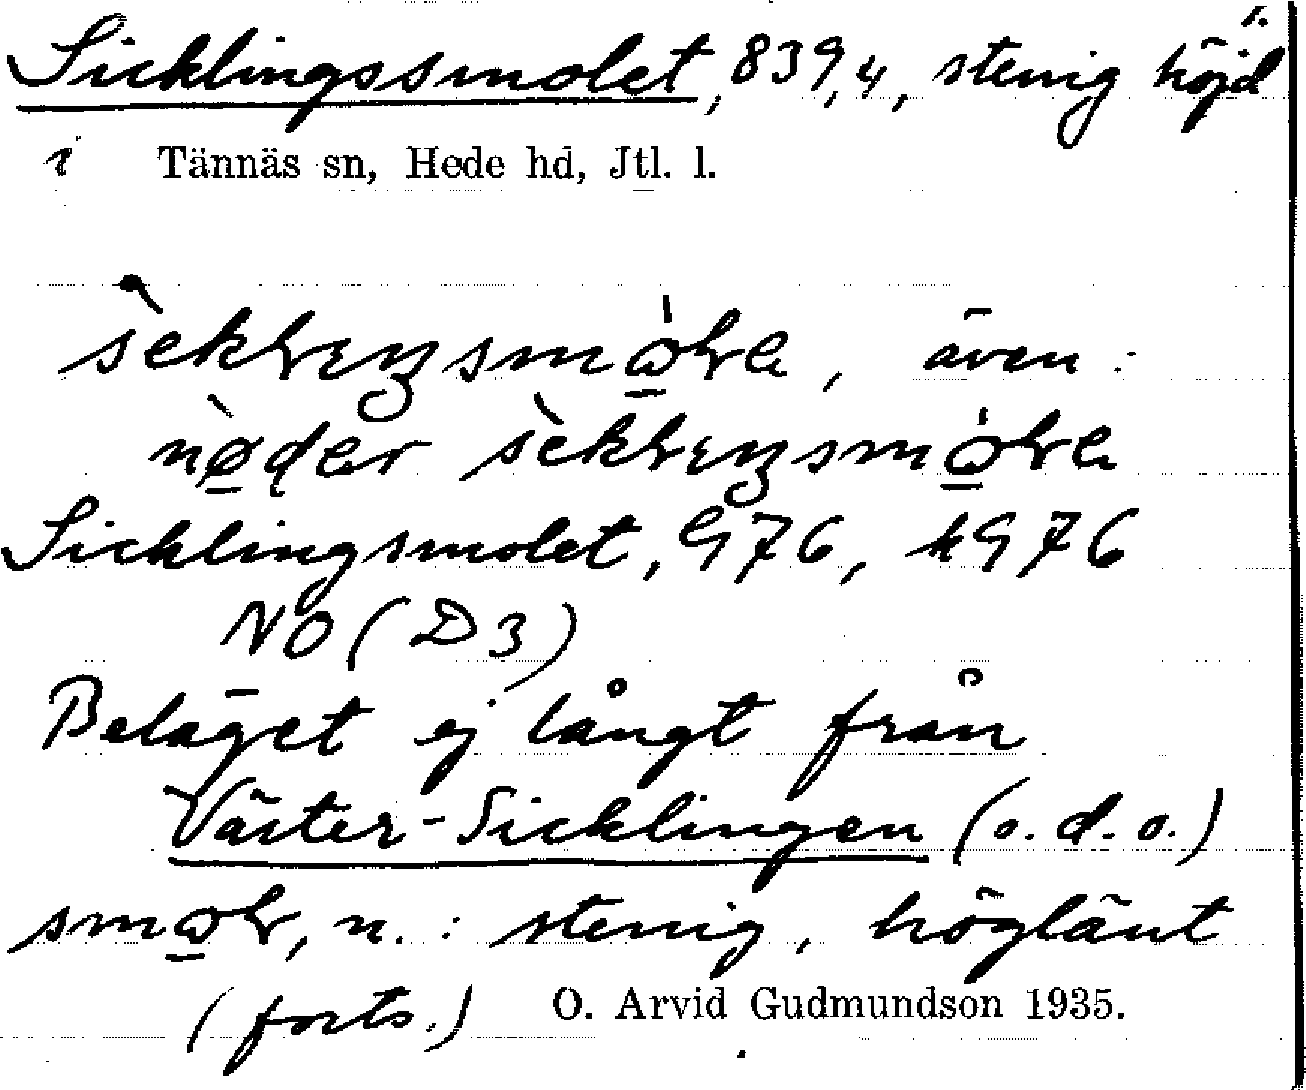 1.
Sicklingssmolet, 839,4, stenig höjd
i Tännäs sn, Hede hd, Jtl. l.
även:
Sicklingsmolet, 976, h976
NO (D3)
Beläget ej långt från
Väster-Sicklingen (o.d.o.)
n.: stenig, höglänt
(forts.) O. Arvid Gudmundson 1935.